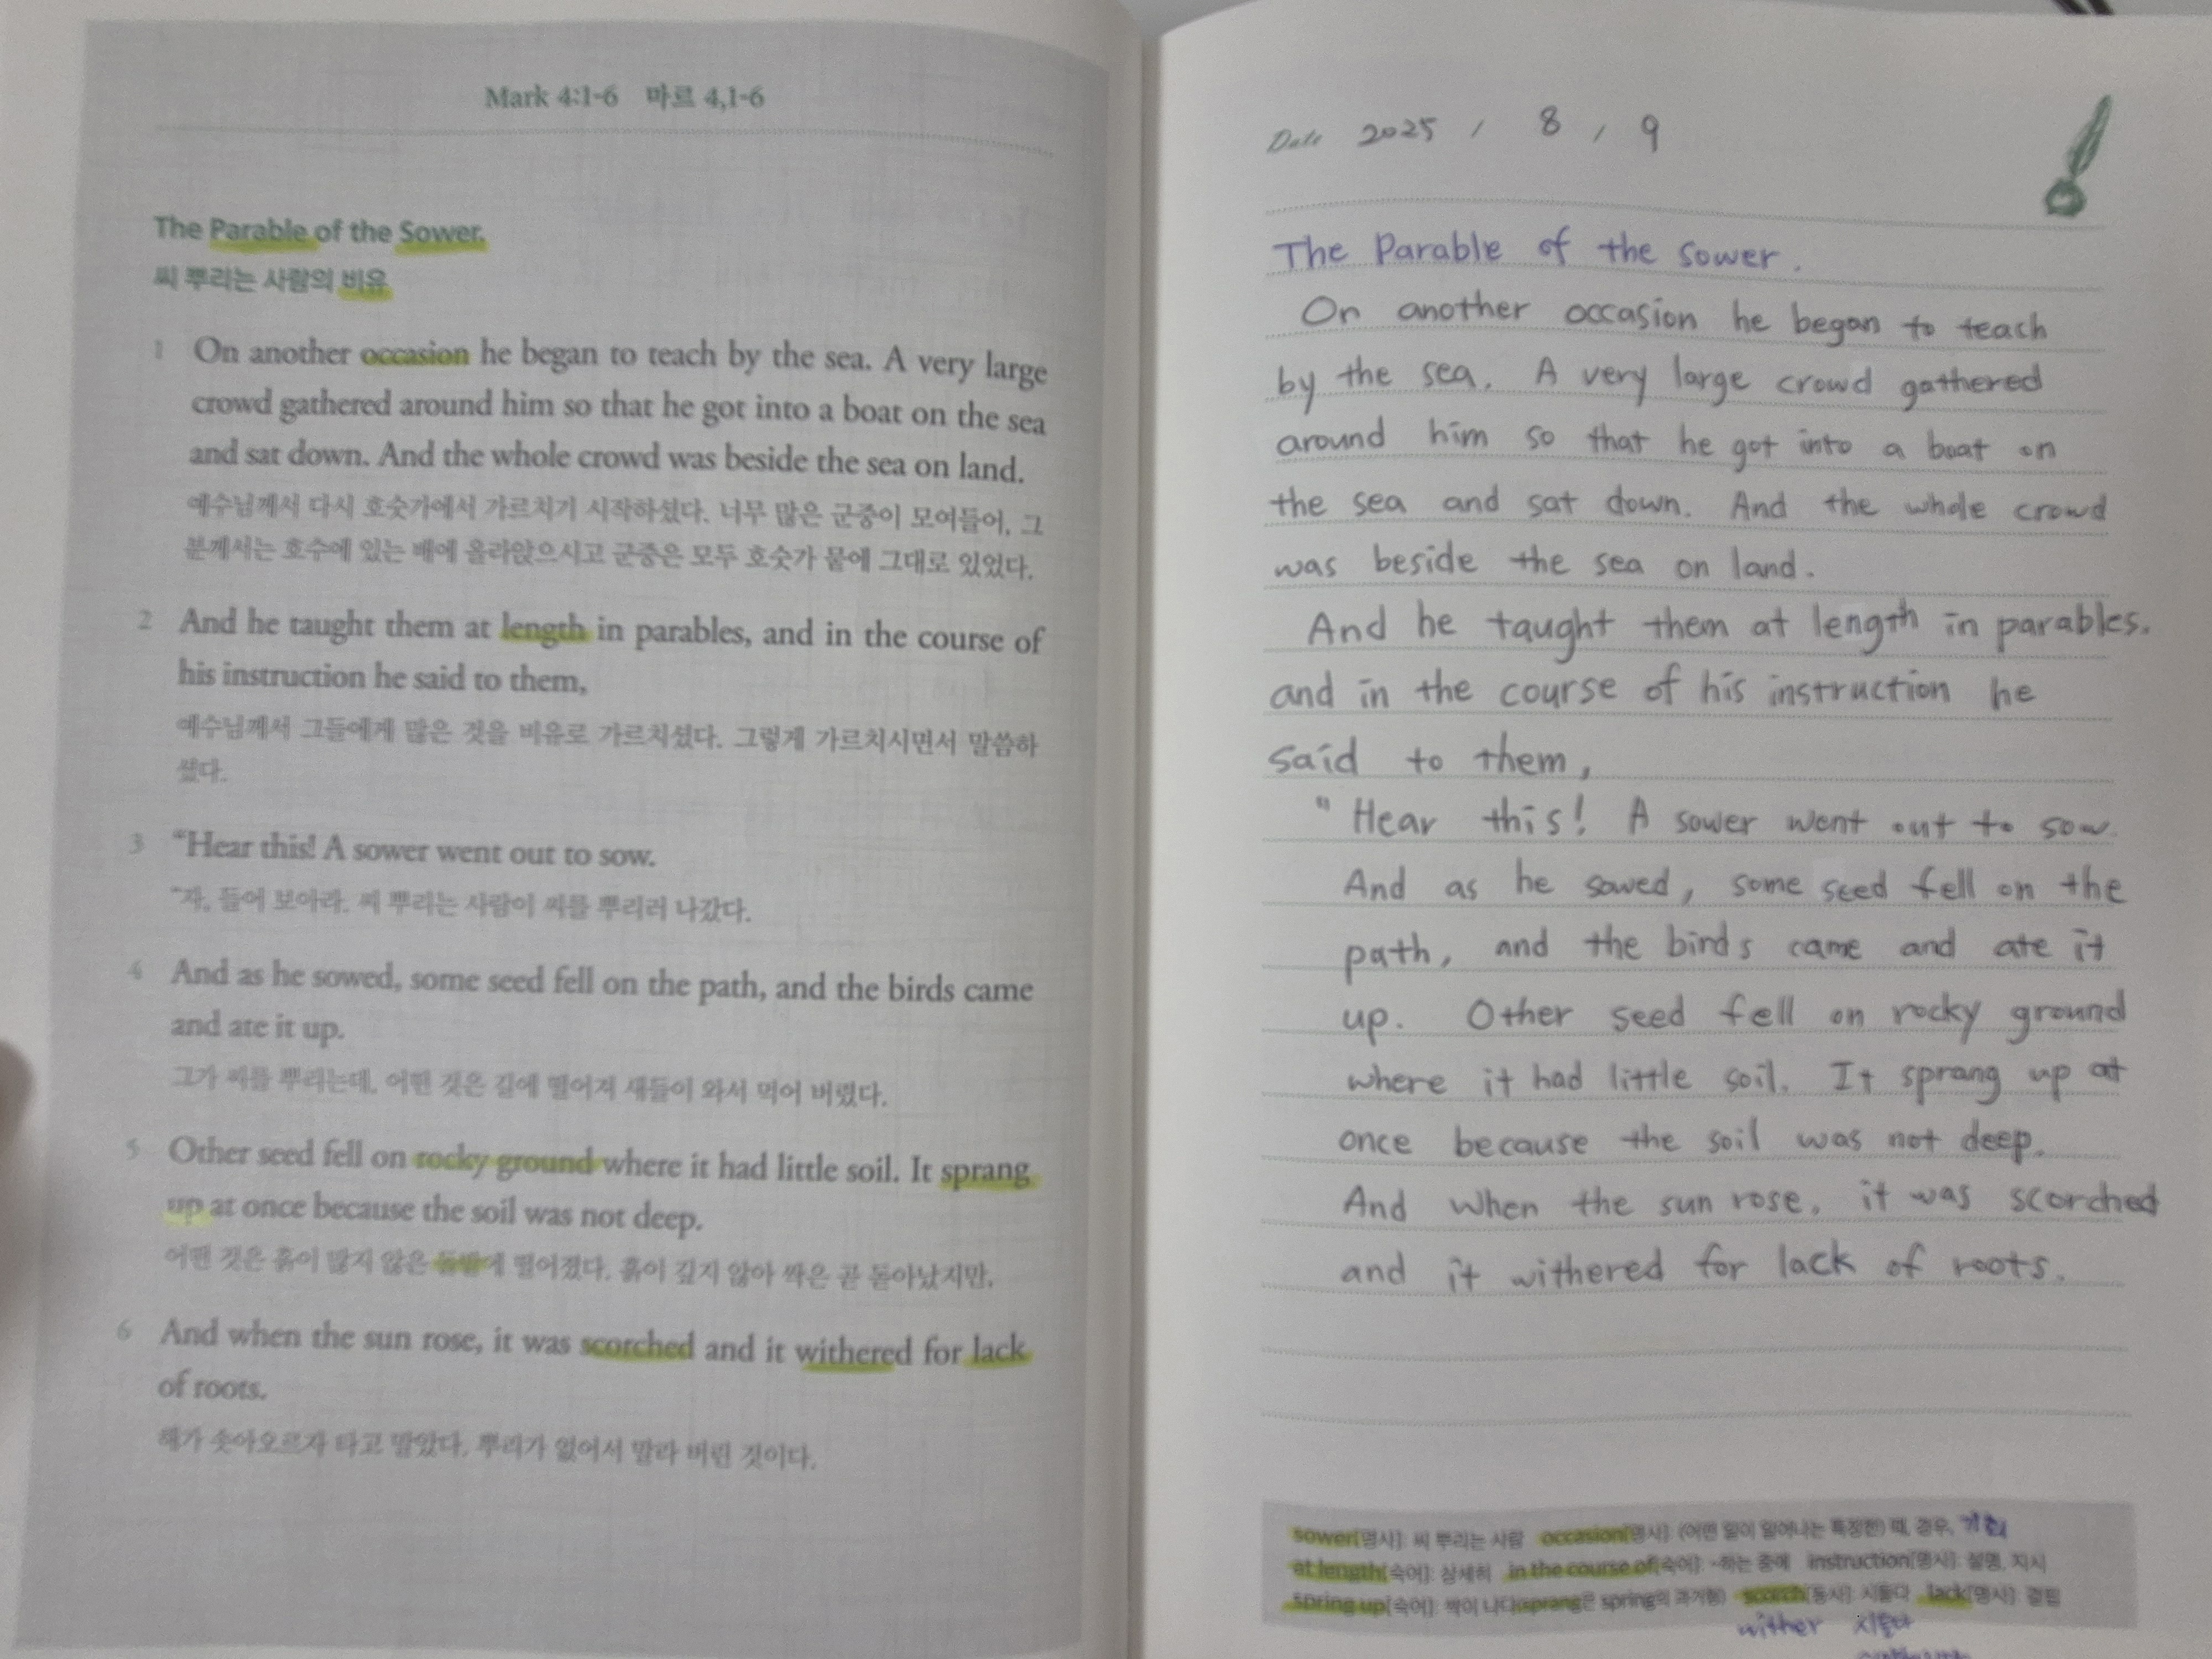 Mark 4:1-6 마르 4,1-6
The Parable of the Sower.
씨 뿌리는 사람의 비유
1 On another occasion he began to teach by the sea. A very large
crowd gathered around him so that he got into a boat on the sea
and sat down. And the whole crowd was beside the sea on land.
예수님께서 다시 호숫가에서 가르치기 시작하셨다. 너무 많은 군중이 모여들어, 그
분께서는 호수에 있는 배에 올라앉으시고 군중은 모두 호숫가 뭍에 그대로 있었다.
2 And he taught them at length in parables, and in the course of
his instruction he said to them,
예수님께서 그들에게 많은 것을 비유로 가르치셨다. 그렇게 가르치시면서 말씀하
셨다.
3 “Hear this! A sower went out to sow.
“자, 들어 보아라. 씨 뿌리는 사람이 씨를 뿌리러 나갔다.
4 And as he sowed, some seed fell on the path, and the birds came
and ate it up.
그가 씨를 뿌리는데, 어떤 것은 길에 떨어져 새들이 와서 먹어 버렸다.
5 Other seed fell on rocky ground where it had little soil. It sprang
up at once because the soil was not deep.
어떤 것은 흙이 많지 않은 돌밭에 떨어졌다. 흙이 깊지 않아 싹은 곧 돋아났지만,
6 And when the sun rose, it was scorched and it withered for lack
of roots.
해가 솟아오르자 타고 말았다. 뿌리가 없어서 말라 버린 것이다.
Date 2025 / 8 / 9
The Parable of the Sower.
On another occasion he began to teach
by the sea. A very large crowd gathered
around him so that he got into a boat on
the sea and sat down. And the whole crowd
was beside the sea on land.
And he taught them at length in parables.
and in the course of his instruction he
said to them,
" Hear this! A sower went out to sow.
And as he sowed, some seed fell on the
path, and the birds came and ate it
up. Other seed fell on rocky ground
where it had little soil. It sprang up at
once because the soil was not deep.
And when the sun rose, it was scorched
and it withered for lack of roots.
sower[명사]: 씨 뿌리는 사람 occasion[명사]: (어떤 일이 일어나는 특정한) 때, 경우, 기회
at length[숙어]: 상세히 in the course of[숙어]: ~하는 중에 instruction[명사]: 설명, 지시
spring up[숙어]: 싹이 나다(sprang은 spring의 과거형) scorch[동사]: 시들다 lack[명사]: 결핍
wither 시들다